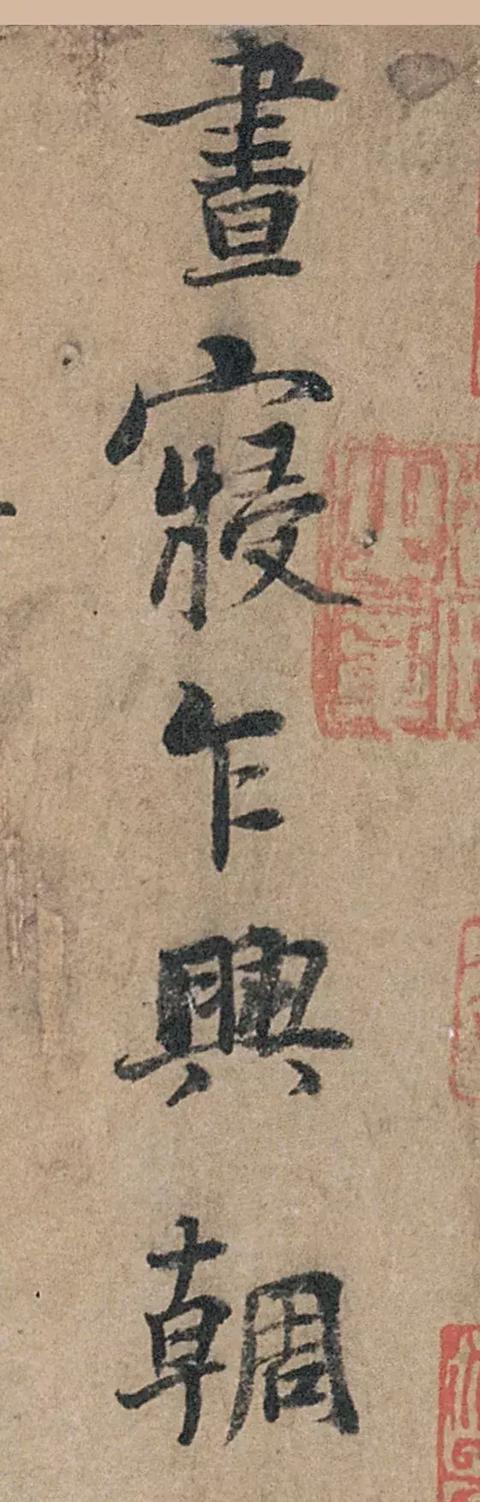 晝寢乍興輖